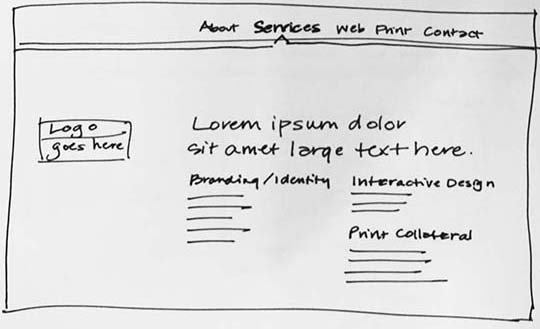 About Services Web Print Contact
Logo
goes here
Lorem ipsum dolor
sit amet large text here.
Branding/Identity
Interactive Design
Print Collateral